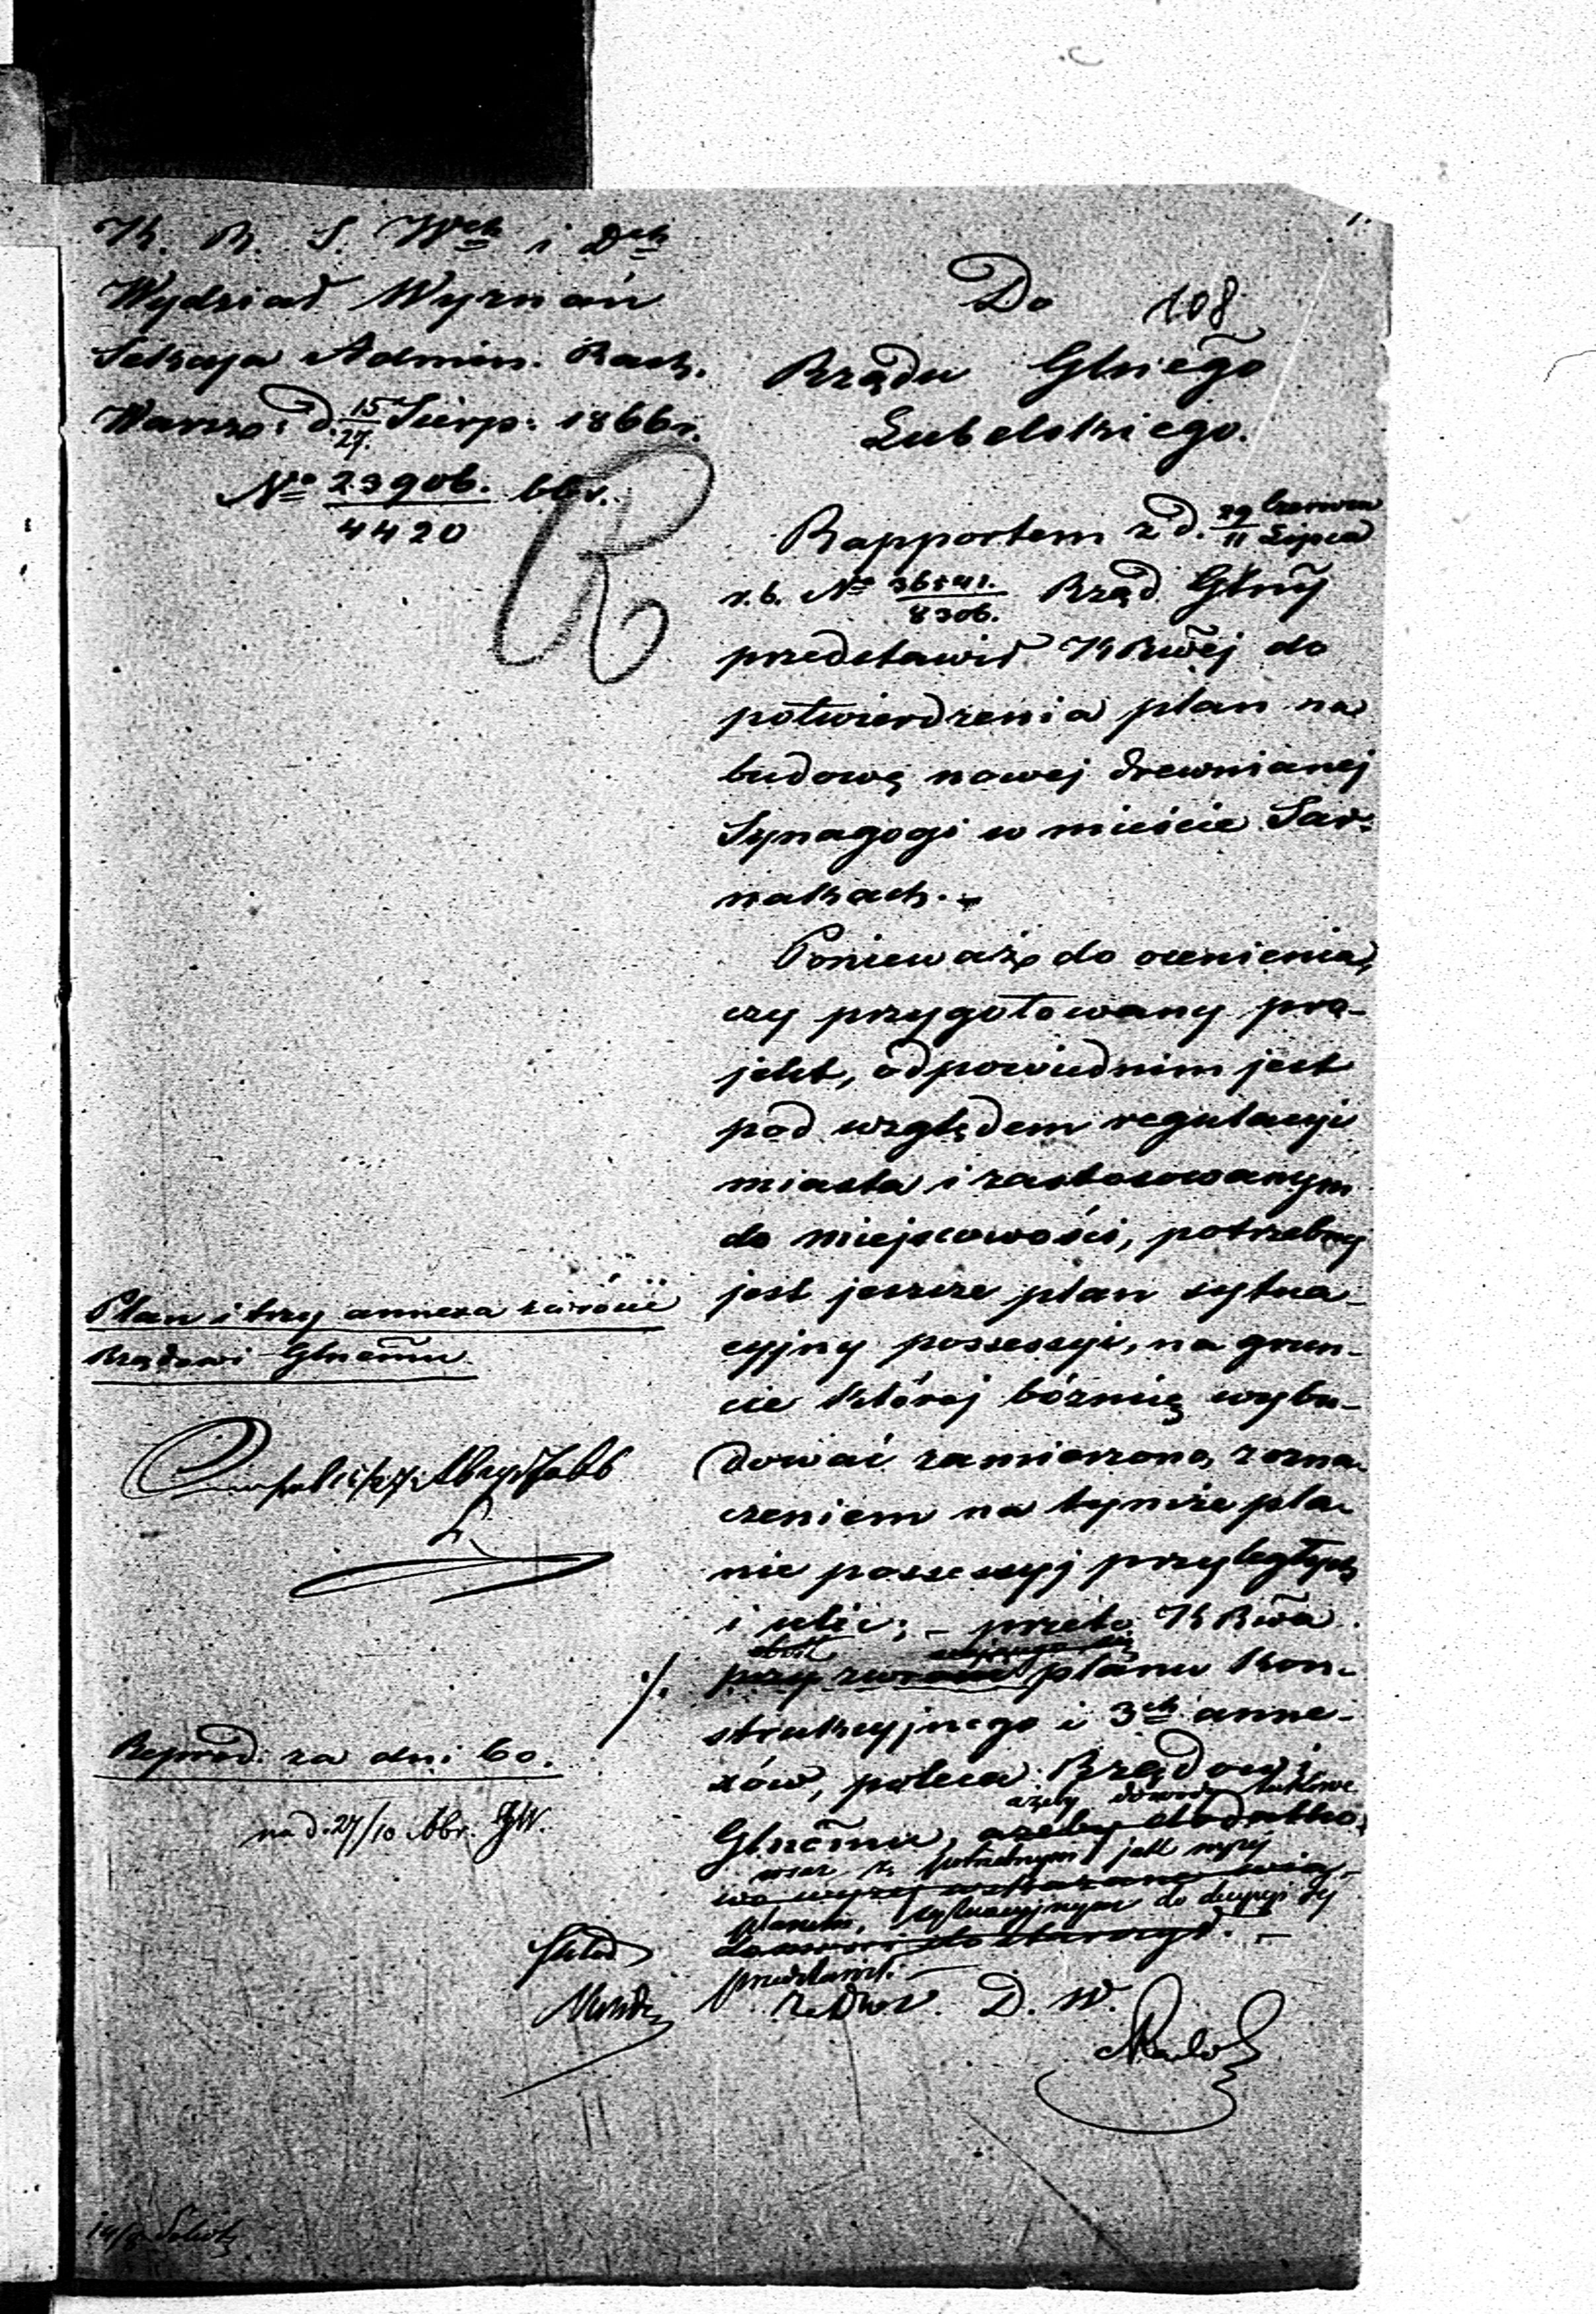 K. R. S. Wch i Dch
Wydział Wyznań
Sekcyja Admin. Rach.
Warsz: d. 15/27 Sierp: 1866 r.
No 23906./4420 66 r.
108
Do
Rządu Glnego
Lubelskiego.
Rapportem z d. 29 Czerwca/11 Lipca
r. b. No 36541./8306. Rząd Glny
przedstawił KRwej do
potwierdzenia plan na
budowę nowej drewnianej
Synagogi w mieście Sar-
nakach. -
Ponieważ do ocenienia,
czy przygotowany pro-
jekt, odpowiednim jest
pod względem regulacyi
miasta i zastosowanym
do miejscowości, potrzebny
jest jeszcze plan sytua-
cyjny possessyi, na grun-
cie której bóżnicę wybu-
dować zamierzono, z ozna-
czeniem na tymże pla-
nie possessyj przyległych
i ulic; - przeto KRwa
przy zwrocie planu kon-
strukcyjnego i 3ch anne-
xów, poleca Rządowi
ażeby dowody takowe
Glnemu, ażeby dodatko-
wraz z potrzebnym jak wyżej
wo wyżej wskazane
planem, sytuacyjnym do decyzyi jej
dostarczył. -
przedstawił. -
D. W.
Plan i trzy annexa zwrócić
Rządowi Glnemu.
Reprod: za dni 60.
na d. 27/10 Abr.